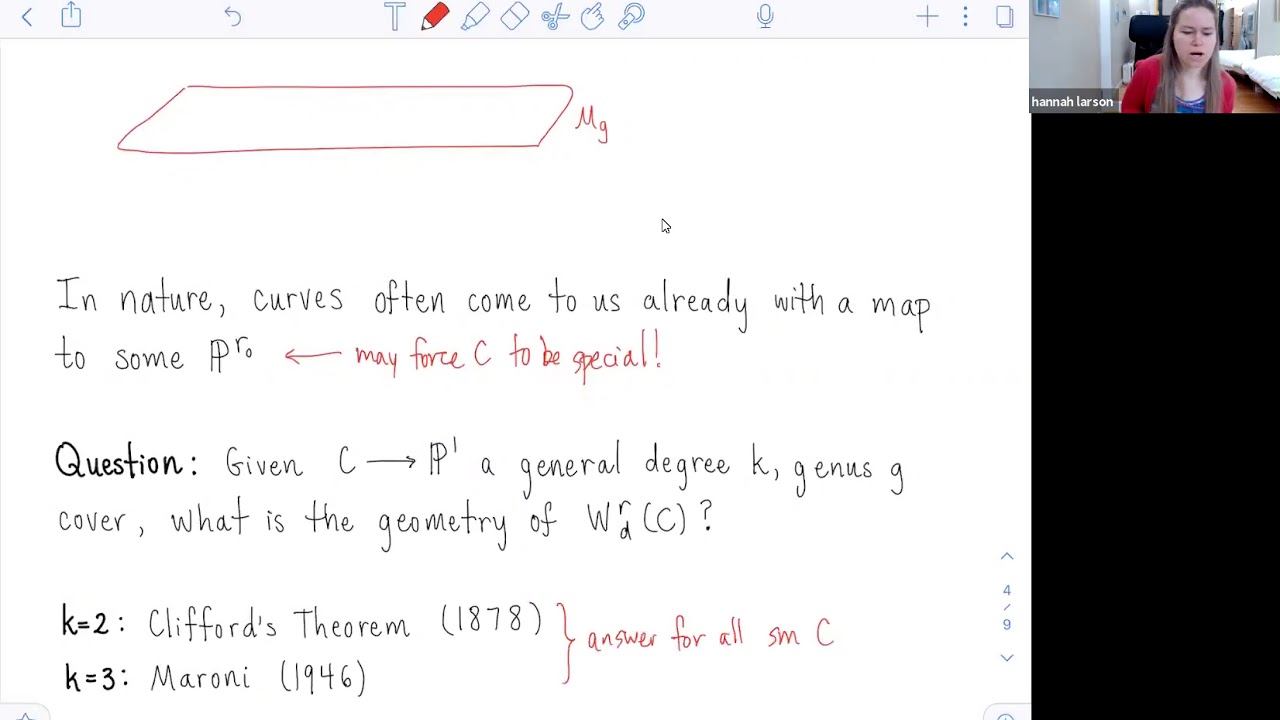 hannah larson
M_g
In nature, curves often come to us already with a map
to some ℙ^{r₀} ← may force C to be special!
Question: Given C ⟶ ℙ¹ a general degree k, genus g
cover, what is the geometry of W^r_d(C)?
k=2: Clifford's Theorem (1878)
} answer for all sm C
k=3: Maroni (1946)
4
/
9